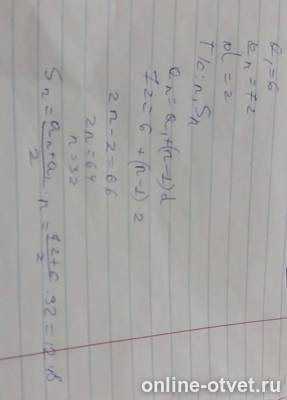 a₁=6
aₙ=72
d=2
Т/с: n, Sₙ
aₙ=a₁+(n-1)d
72=6+(n-1)2
2n-2=66
2n=64
n=32
Sₙ=(aₙ+a₁)/2·n=(72+6)/2·32=1248
online-otvet.ru